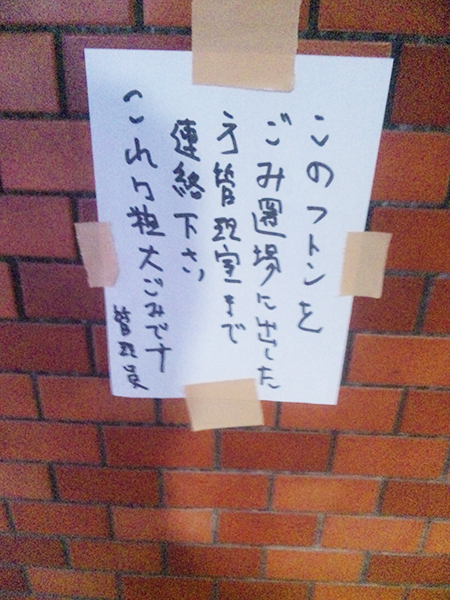 このフトンを
ごみ置場に出した
方管理室まで
連絡下さい
これハ粗大ごみです
管理員